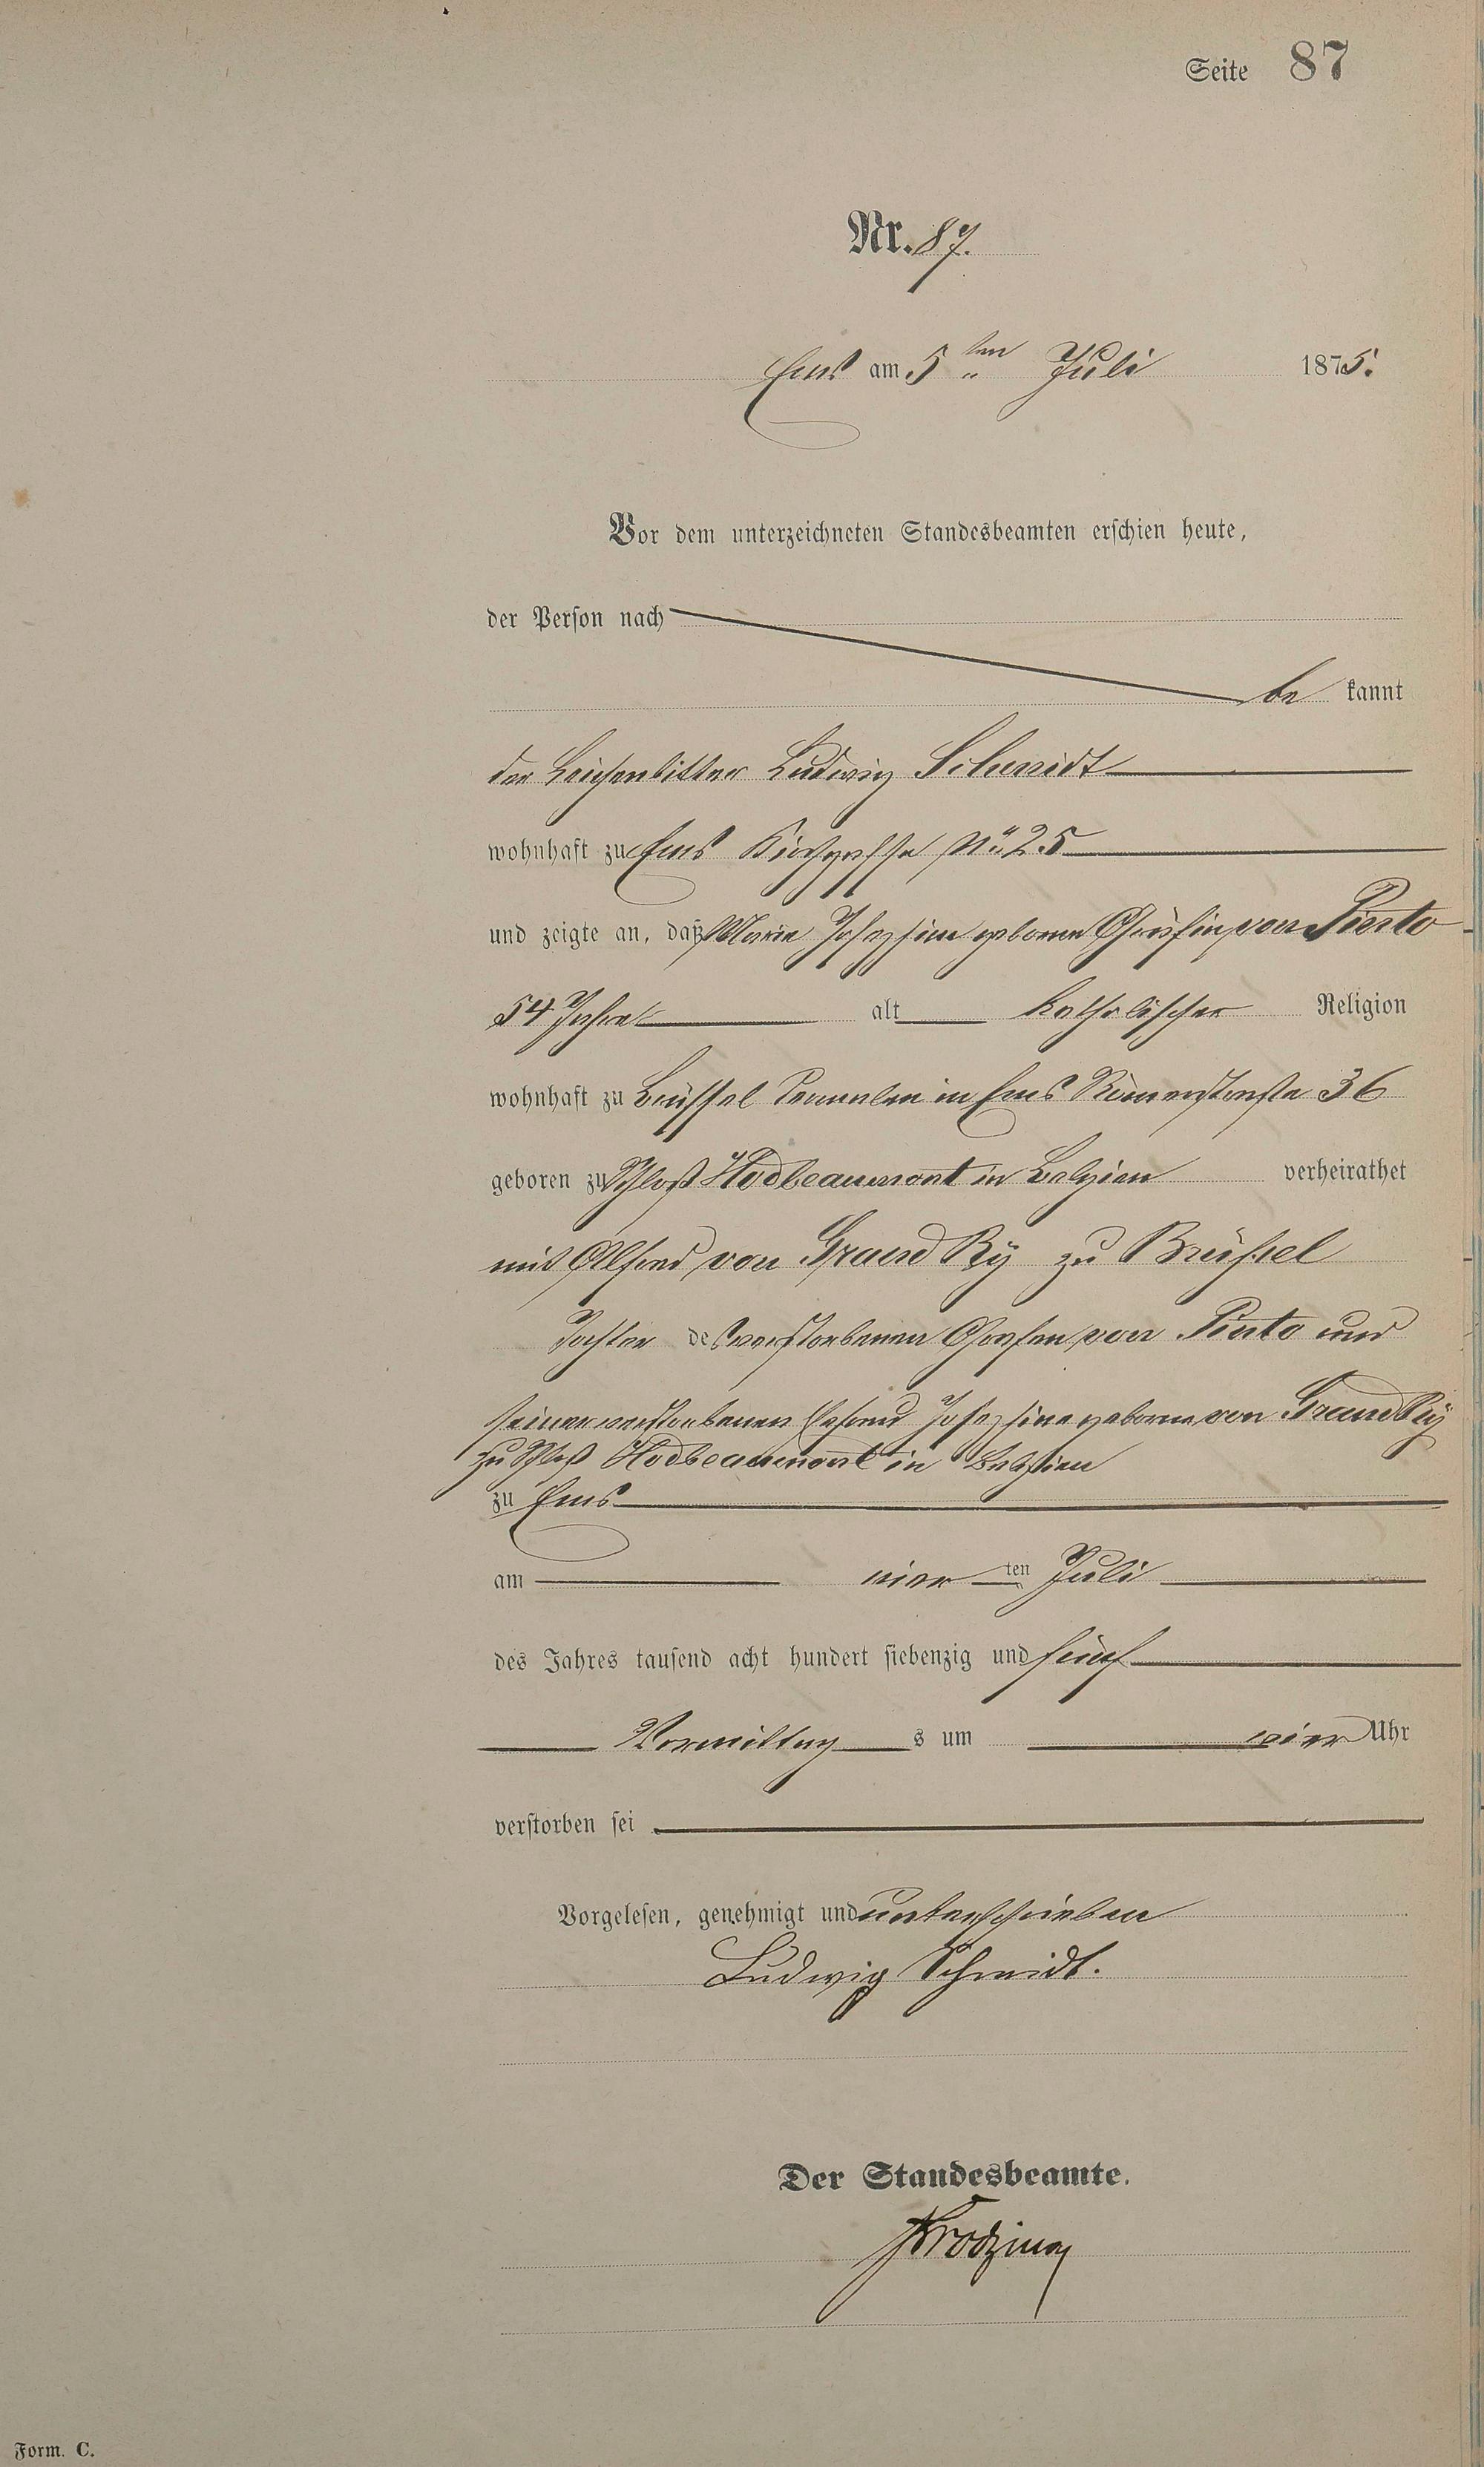 Seite 87
Nr. 87.
Ems am 5ten Juli 1875.
Vor dem unterzeichneten Standesbeamten erschien heute,
der Person nach
be kannt
der Leichenbitter Ludwig Schmidt
wohnhaft zu Ems Kirchgasse No 25
und zeigte an, daß Marie Josephine geborene Gräfin von Pinto
54 Jahre alt katholischer Religion
wohnhaft zu Brüssel in Ems Römerstraße 36
geboren zu Schloß Hodbeaumont in Belgien verheirathet
mit Alfred von Grand Ry zu Brüssel
Tochter des verstorbenen Grafen von Pinto und
seiner verstorbenen Ehefrau Josephine geborne von Grand Ry
zu Schloß Hodbeaumont in Belgien
zu Ems
am vier ten Juli
des Jahres tausend acht hundert siebenzig und fünf
Vormittag s um vier Uhr
verstorben sei
Vorgelesen, genehmigt und unterschrieben
Ludwig Schmidt.
Der Standesbeamte.
Form. C.